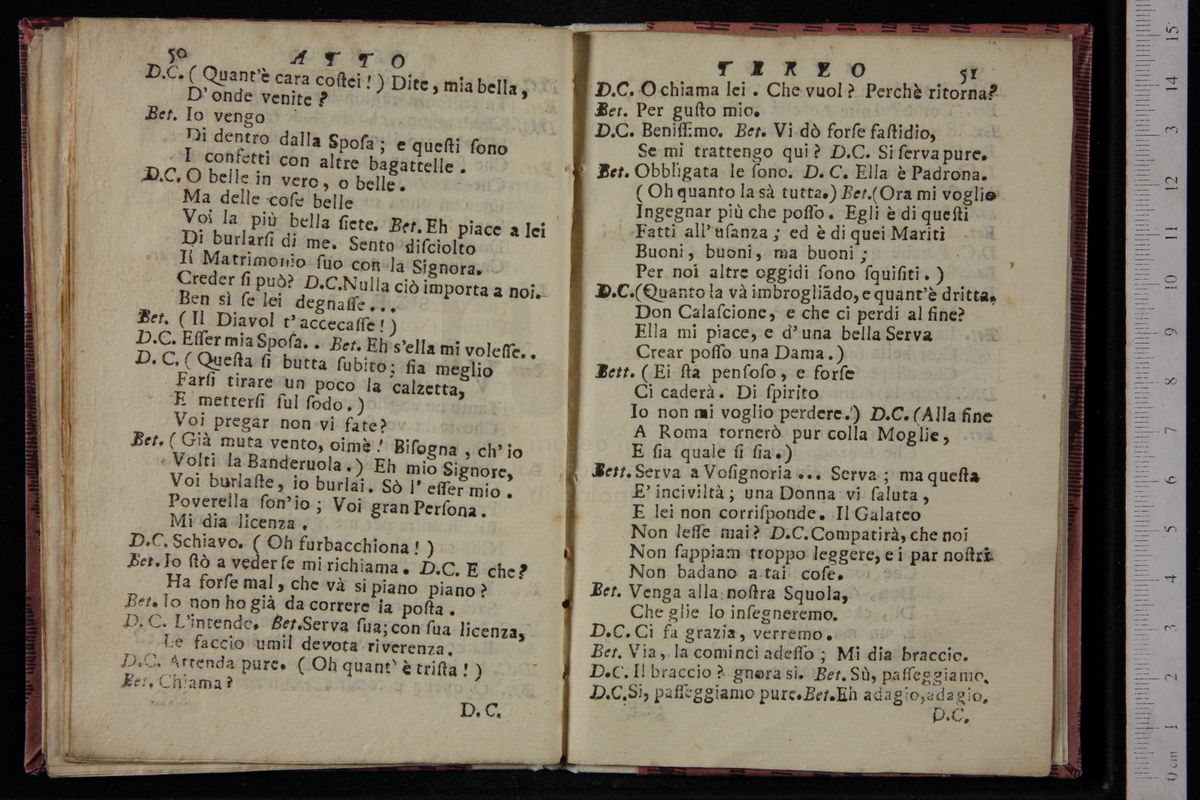 50 ATTO
D.C. ( Quant'è cara coſtei ! ) Dite, mia bella,
D'onde venite ?
Bet. Io vengo
Di dentro dalla Spoſa ; e queſti ſono
I confetti con altre bagattelle .
D.C. O belle in vero, o belle.
Ma delle coſe belle
Voi la più bella ſiete. Bet. Eh piace a lei
Di burlarſi di me. Sento diſciolto
Il Matrimonio ſuo con la Signora.
Creder ſi può? D.C. Nulla ciò importa a noi.
Ben sì ſe lei degnaſſe...
Bet. ( Il Diavol t'accecaſſe ! )
D.C. Eſſer mia Spoſa.. Bet. Eh s'ella mi voleſſe..
D. C. ( Queſta ſi butta ſubito; ſia meglio
Farſi tirare un poco la calzetta,
E metterſi ſul ſodo. )
Voi pregar non vi fate?
Bet. ( Già muta vento, oimè ! Biſogna , ch'io
Volti la Banderuola. ) Eh mio Signore,
Voi burlaſte, io burlai. Sò l' eſſer mio .
Poverella ſon'io ; Voi gran Perſona.
Mi dia licenza .
D.C. Schiavo. ( Oh furbacchiona ! )
Bet. Io ſtò a veder ſe mi richiama. D.C. E che?
Ha forſe mal, che và sì piano piano ?
Bet. Io non ho già da correre la poſta .
D. C. L'intendo. Bet. Serva ſua; con ſua licenza,
Le faccio umil devota riverenza.
D.C. Attenda pure. ( Oh quant' è triſta ! )
Bet. Chiama ?
D. C.
TERZO 51
D.C. O chiama lei . Che vuol ? Perchè ritorna?
Bet. Per guſto mio.
D.C. Beniſſimo. Bet. Vi dò forſe faſtidio,
Se mi trattengo qui ? D.C. Si ſerva pure.
Bet. Obbligata le ſono. D. C. Ella è Padrona.
( Oh quanto la sà tutta.) Bet. (Ora mi voglio
Ingegnar più che poſſo. Egli è di queſti
Fatti all' uſanza ; ed è di quei Mariti
Buoni, buoni, ma buoni ;
Per noi altre oggidì ſono ſquiſiti. )
D.C. (Quanto la và imbrogliãdo, e quant'è dritta.
Don Calaſcione, e che ci perdi al fine?
Ella mi piace, e d' una bella Serva
Crear poſſo una Dama. )
Bett. ( Ei ſta penſoſo, e forſe
Ci caderà. Di ſpirito
Io non mi voglio perdere.) D.C. (Alla fine
A Roma tornerò pur colla Moglie,
E ſia quale ſi ſia. )
Bett. Serva a Voſignoria ... Serva ; ma queſta
E' inciviltà ; una Donna vi ſaluta ,
E lei non corriſponde. Il Galateo
Non leſſe mai? D.C. Compatirà, che noi
Non ſappiam troppo leggere, e i par noſtri
Non badano a tai coſe.
Bet. Venga alla noſtra Squola,
Che glie lo inſegneremo.
D.C. Ci fa grazia, verremo.
Bet. Via, la cominci adeſſo ; Mi dia braccio.
D.C. Il braccio ? gnora sì. Bet. Sù, paſſeggiamo.
D.C. Sì, paſſeggiamo pure. Bet. Eh adagio, adagio.
D.C.